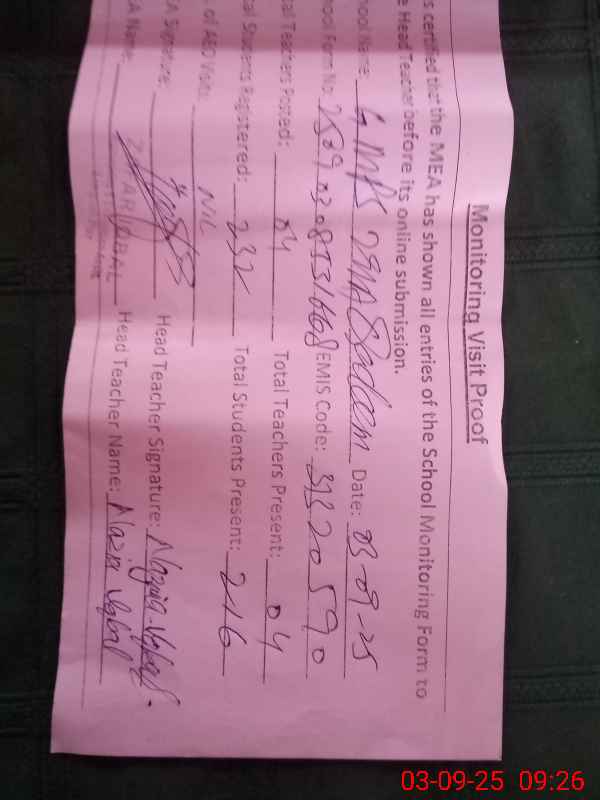 Monitoring Visit Proof
s certified that the MEA has shown all entries of the School Monitoring Form to
e Head Teacher before its online submission.
hool Name: GMPS Date: 03-09-25
hool Form No: EMIS Code: 31320590
al Teachers Posted: 04 Total Teachers Present: 04
tal Students Registered: 232 Total Students Present: 216
. of AEO Visits: NIL
A Signature: Head Teacher Signature: Nazia Iqbal
A Name: IQBAL Head Teacher Name: Nazia Iqbal
03-09-25 09:26